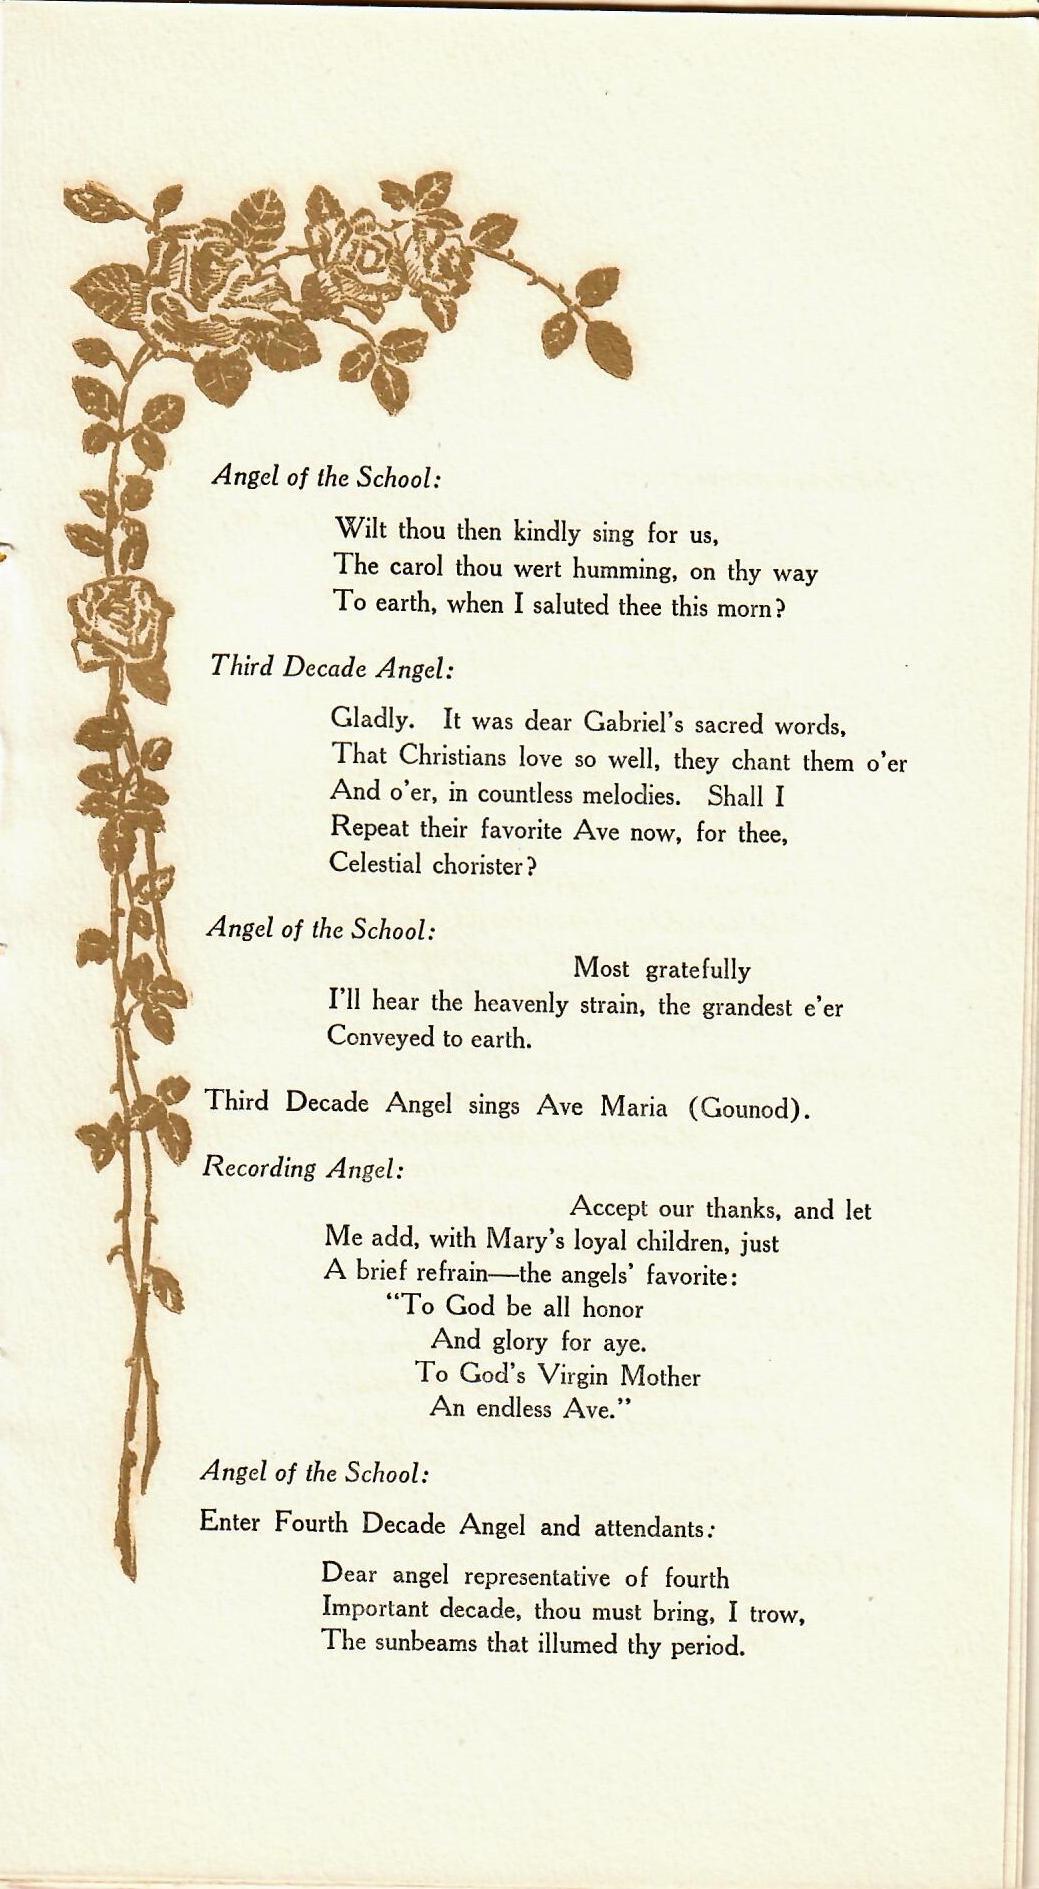 Angel of the School:
Wilt thou then kindly sing for us,
The carol thou wert humming, on thy way
To earth, when I saluted thee this morn?
Third Decade Angel:
Gladly. It was dear Gabriel's sacred words,
That Christians love so well, they chant them o'er
And o'er, in countless melodies. Shall I
Repeat their favorite Ave now, for thee,
Celestial chorister?
Angel of the School:
Most gratefully
I'll hear the heavenly strain, the grandest e'er
Conveyed to earth.
Third Decade Angel sings Ave Maria (Gounod).
Recording Angel:
Accept our thanks, and let
Me add, with Mary's loyal children, just
A brief refrain—the angels' favorite:
"To God be all honor
And glory for aye.
To God's Virgin Mother
An endless Ave."
Angel of the School:
Enter Fourth Decade Angel and attendants:
Dear angel representative of fourth
Important decade, thou must bring, I trow,
The sunbeams that illumed thy period.